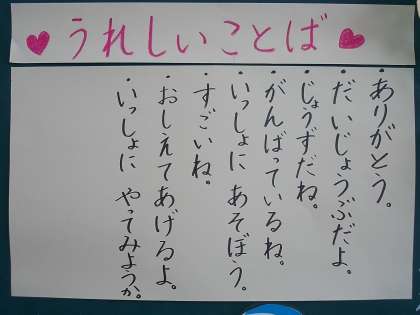 うれしいことば
・ありがとう。
・だいじょうぶだよ。
・じょうずだね。
・がんばっているね。
・いっしょに あそぼう。
・すごいね。
・おしえてあげるよ。
・いっしょに やってみようか。